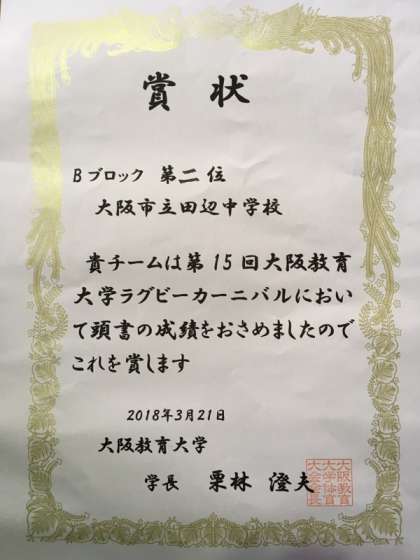 賞状
Bブロック 第二位
大阪市立田辺中学校
貴チームは第15回大阪教育
大学ラグビーカーニバルにおい
て頭書の成績をおさめましたので
これを賞します
2018年3月21日
大阪教育大学
学長 栗林 澄夫